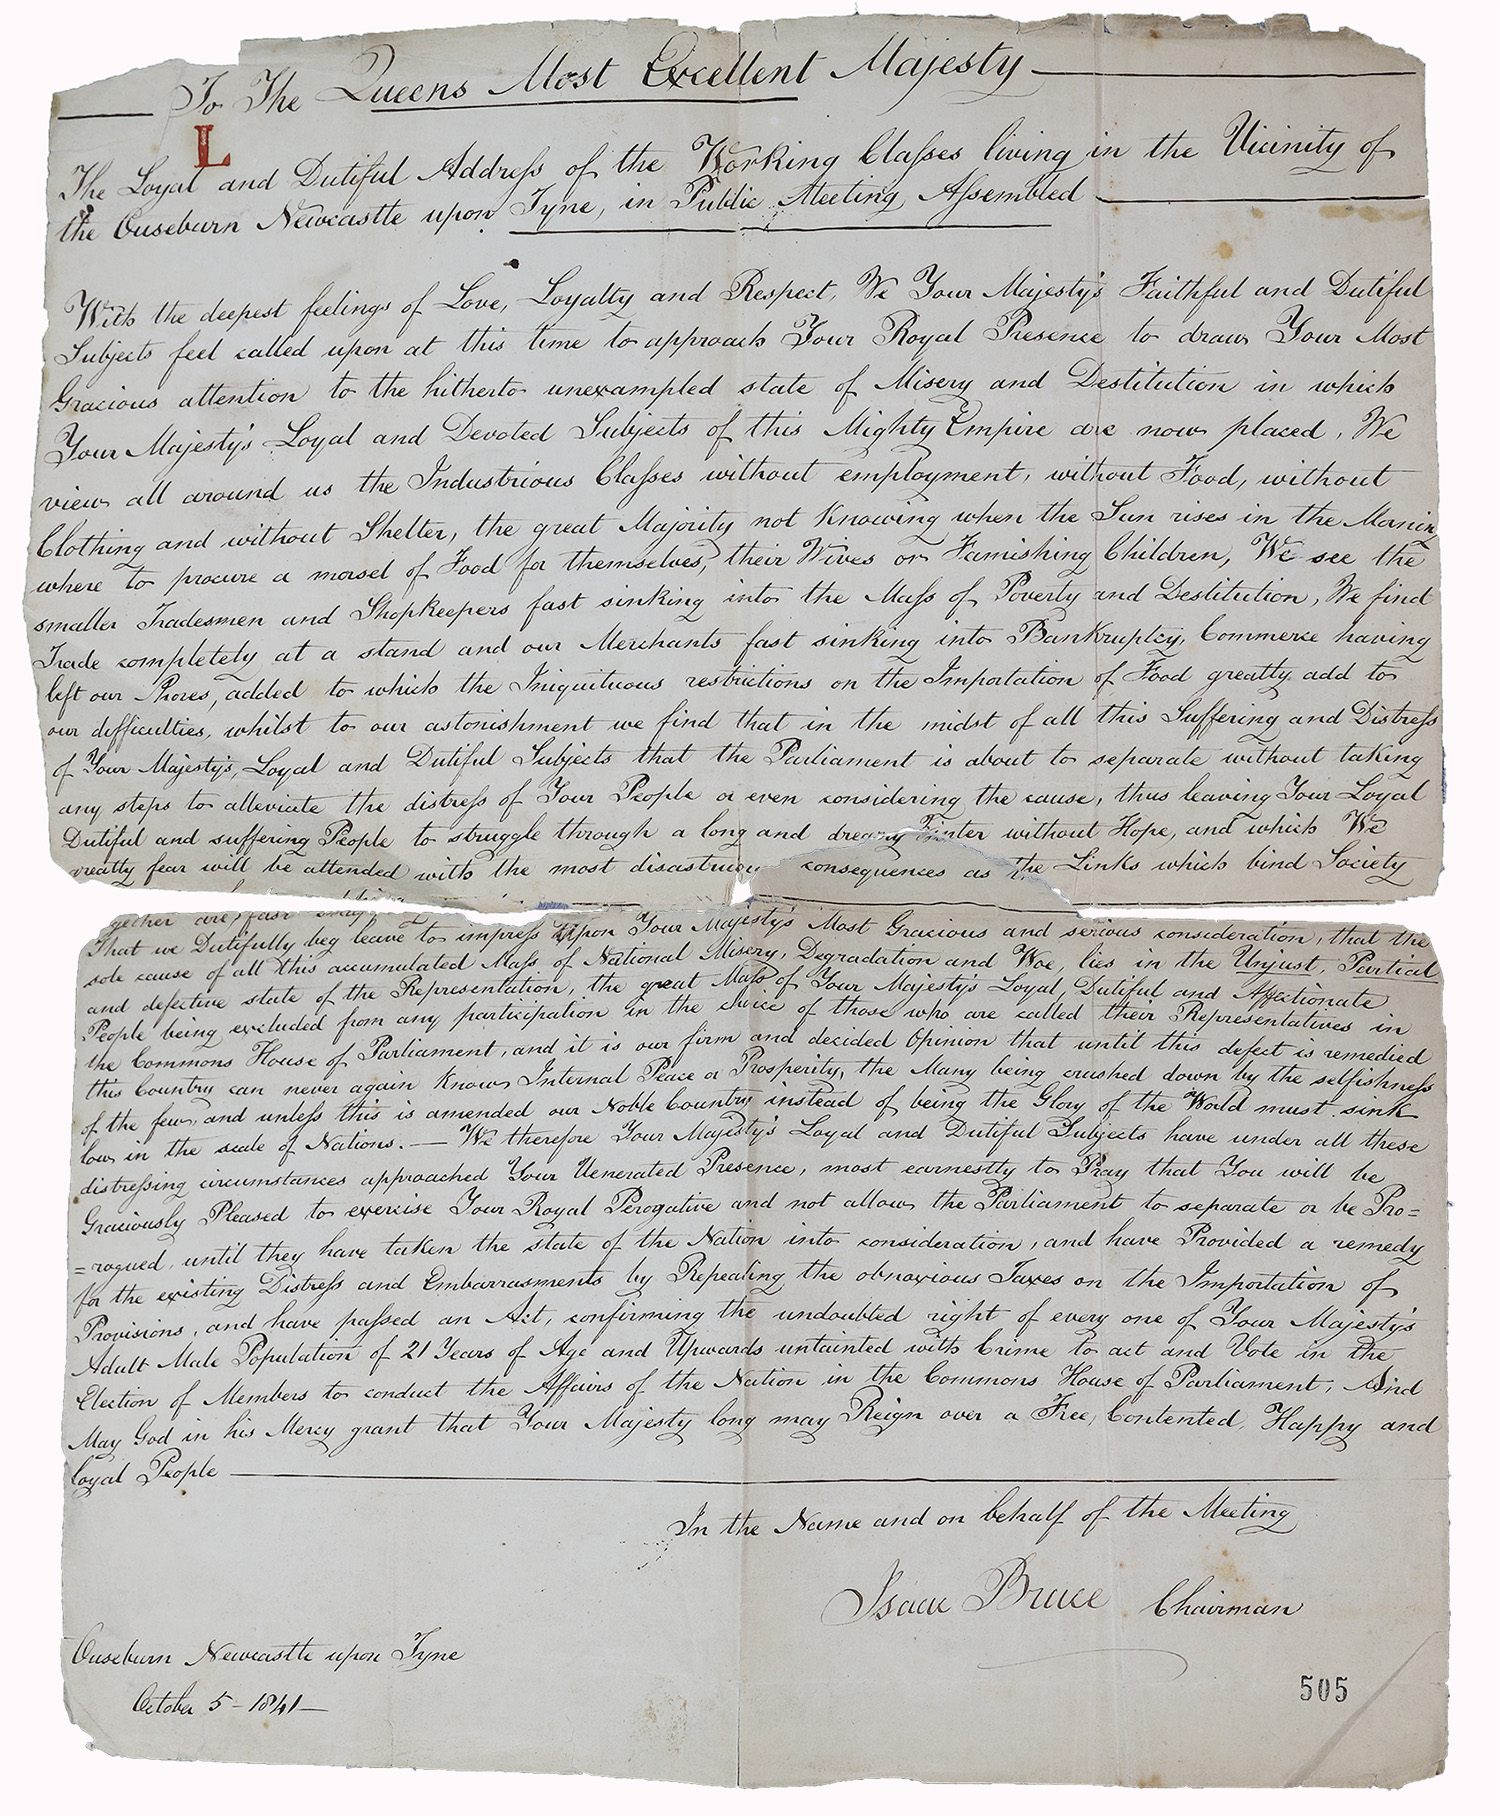 To The Queens Most Excellent Majesty
L
The Loyal and Dutiful Address of the Working Classes living in the Vicinity of
the Ouseburn Newcastle upon Tyne, in Public Meeting Assembled
With the deepest feelings of Love, Loyalty and Respect, We Your Majesty's Faithful and Dutiful
Subjects feel called upon at this time to approach Your Royal Presence to draw Your Most
Gracious attention to the hitherto unexampled state of Misery and Destitution in which
Your Majesty's Loyal and Devoted Subjects of this Mighty Empire are now placed, We
view all around us the Industrious Classes without employment, without Food, without
Clothing and without Shelter, the great Majority not Knowing when the Sun rises in the Morning
where to procure a morsel of Food for themselves, their Wives or Famishing Children, We see the
smaller Tradesmen and Shopkeepers fast sinking into the Mass of Poverty and Destitution, We find
Trade completely at a stand and our Merchants fast sinking into Bankruptcy, Commerce having
left our Shores, added to which the Iniquituous restrictions on the Importation of Food greatly add to
our difficulties, whilst to our astonishment we find that in the midst of all this Suffering and Distress
of Your Majesty's, Loyal and Dutiful Subjects that the Parliament is about to separate without taking
any steps to alleviate the distress of Your People or even considering the cause, thus leaving Your Loyal
Dutiful and suffering People to struggle through a long and dreary Winter without Hope, and which We
greatly fear will be attended with the most disastrous consequences as the Links which bind Society
gether are fast
That we Dutifully beg leave to impress Upon Your Majesty's Most Gracious and serious consideration, that the
sole cause of all this accumulated Mass of National Misery, Degradation and Woe, lies in the Unjust, Partial
and defective state of the Representation, the great Mass of Your Majesty's Loyal, Dutiful and Affectionate
People being excluded from any participation in the choice of those who are called their Representatives in
the Commons House of Parliament, and it is our firm and decided Opinion that until this defect is remedied
this Country can never again Know Internal Peace or Prosperity, the Many being crushed down by the selfishness
of the few, and unless this is amended our Noble Country instead of being the Glory of the World must sink
low in the scale of Nations. — We therefore Your Majesty's Loyal and Dutiful Subjects have under all these
distressing circumstances approached Your Venerated Presence, most earnestly to Pray that You will be
Graciously Pleased to exercise Your Royal Perogative and not allow the Parliament to separate or be Pro=
=rogued, until they have taken the state of the Nation into consideration, and have Provided a remedy
for the existing Distress and Embarrasments by Repealing the obnoxious Taxes on the Importation of
Provisions, and have passed an Act, confirming the undoubted right of every one of Your Majesty's
Adult Male Population of 21 Years of Age and Upwards untainted with Crime to act and Vote in the
Election of Members to conduct the Affairs of the Nation in the Commons House of Parliament, And
May God in his Mercy grant that Your Majesty long may Reign over a Free, Contented, Happy and
Loyal People
In the Name and on behalf of the Meeting
Isaac Bruce Chairman
Ouseburn Newcastle upon Tyne
October 5 - 1841 —
505